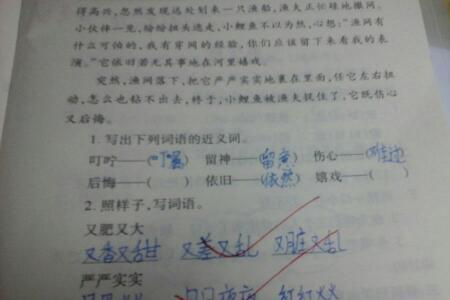 得高兴,忽然发现远处划来一只渔船,渔夫正忙碌地撒网。
小伙伴一见,纷纷扭头逃走,小鲤鱼不以为然,心想:“渔网有
什么可怕的,我有穿网的经验,你们应该留下来看我的表
演。”它依旧若无其事地在河里嬉戏。
突然,渔网落下,把它严严实实地裹在里面,任它左右扭
动,怎么也钻不出去,终于,小鲤鱼被渔夫捉住了,它既伤心
又后悔。
1. 写出下列词语的近义词。
叮咛——(叮嘱) 留神——(留意) 伤心——(难过)
后悔——( ) 依旧——(依然) 嬉戏——( )
2. 照样子,写词语。
又肥又大
又香又甜 又差又乱 又脏又乱
严严实实
日日夜夜 红红火火